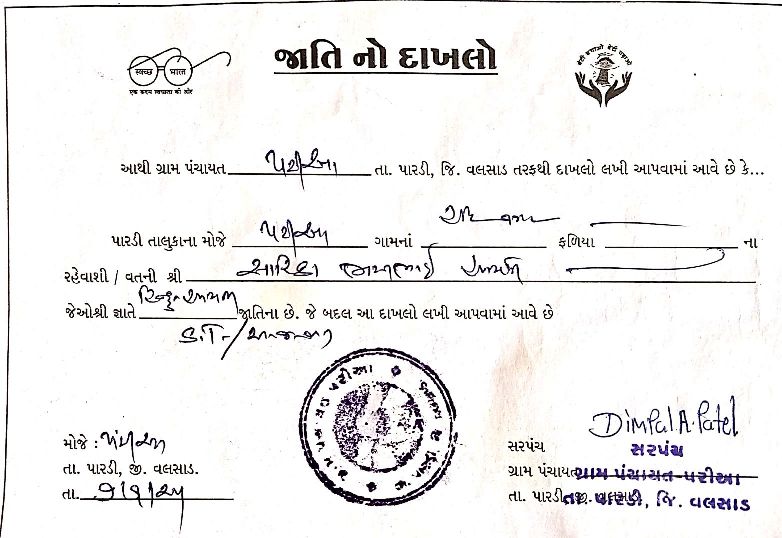 स्वच्छ भारत
एक कदम स्वच्छता की ओर
જાતિ નો દાખલો
બેટી બચાવો બેટી પઢાવો
આથી ગ્રામ પંચાયત પરીઆ તા. પારડી, જિ. વલસાડ તરફથી દાખલો લખી આપવામાં આવે છે કે...
પારડી તાલુકાના મોજે પરીઆ ગામનાં ફળિયા ના
રહેવાશી / વતની શ્રી સારિકા
જેઓશ્રી જ્ઞાતે હિન્દુ જાતિના છે. જે બદલ આ દાખલો લખી આપવામાં આવે છે
S.T./
મોજે : પરીઆ
તા. પારડી, જી. વલસાડ.
તા. 9/9/24
DimPal A. Patel
સરપંચ
સરપંચ
ગ્રામ પંચાયત ગ્રામ પંચાયત-પરીઆ
તા. પારડી, જી. વલસાડ તા. પારડી, જિ. વલસાડ